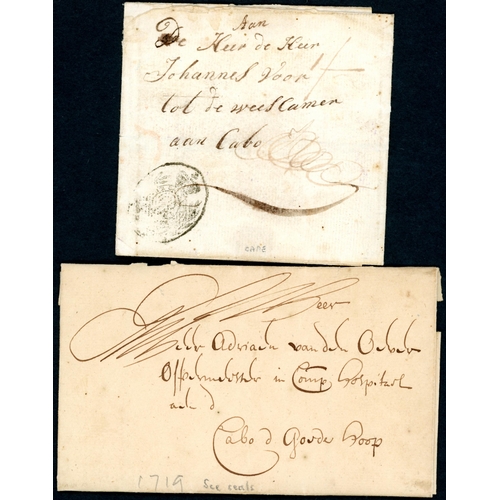 Aan
De Heer de Heer
Johannes Voor
tot de weescamer
aan Cabo
CAPE
Heer
Adriaen van den Oever
in Comp Hospitael
aen d.
Cabo d Goede Hoop
1719 See seals